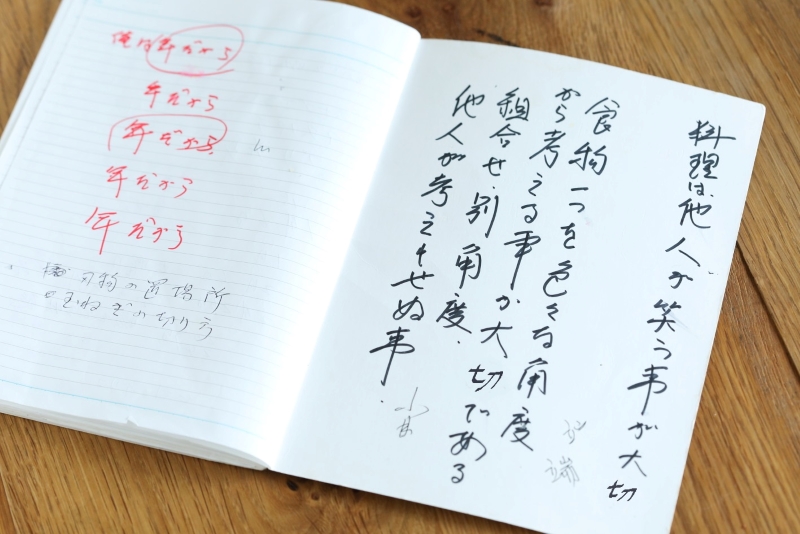 俺は年だから
年だから
年だから
年だから
年だから
刃物の置場所
玉ねぎの切り方
料理は、他人が笑う事が大切
食物一つを色々な角度
から考える事が大切である
組合せ、別角度.
他人が考えもせぬ事.